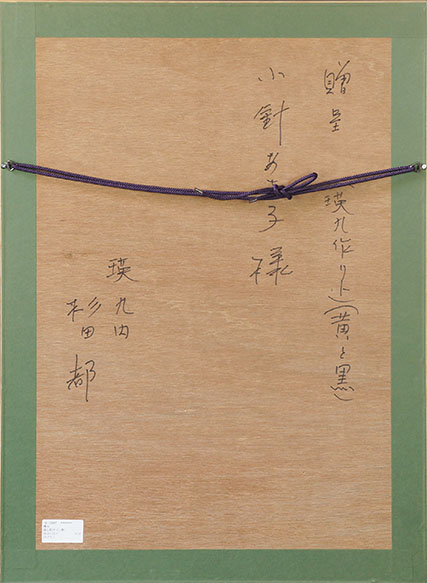 贈呈 瑛九作リト(黄と黒)
小針あき子様
瑛九内
杉田 都